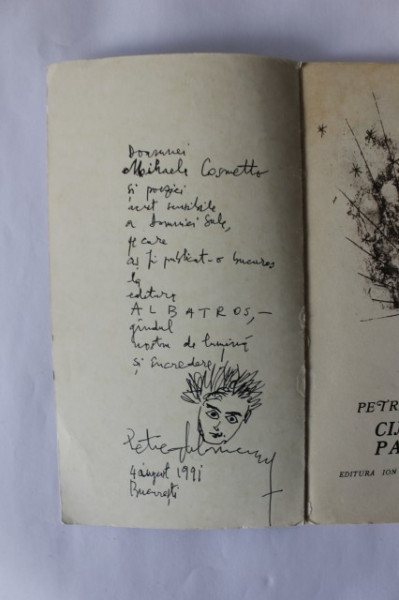 Doamnei
Mihaela Cosmetto
și poeziei
a Domniei Sale,
pe care
aș fi publicat-o bucuros
la
editura
ALBATROS,—
gîndul
nostru de lumină
și încredere
4 august 1991
București
PETR
CI
PA
EDITURA ION